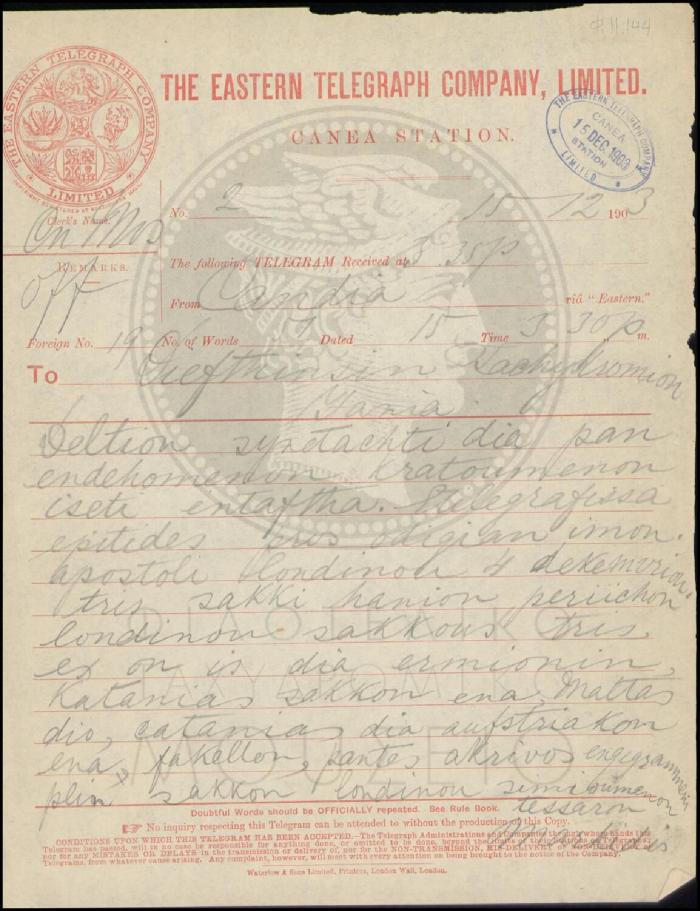 Φ.11.144
THE EASTERN TELEGRAPH COMPANY, LIMITED.
CANEA STATION.
THE EASTERN TELEGRAPH COMPANY
LIMITED
THE EASTERN TELEGRAPH COMPANY
CANEA
15 DEC. 1903
STATION
LIMITED
Clerk's Name.
No. 2 15-12 1903
REMARKS.
off
The following TELEGRAM Received at 3.35p
From Candia viâ "Eastern."
Foreign No. 19 No. of Words 59 Dated 15 Time 3 30 p m.
To Diefthinsin Tachydromion
Hania
Deltion syntachti dia pan
endehomenon kratoumenon
iseti entaftha. Etilegrafissa
epitides pros odigian imon.
apostoli londinou 4 dekemvriou
tris sakki hanion periichon
londinou sakkous tris,
ex on is dia ermionin,
Katanias sakkon ena, Maltas
dio, catanias dia aufstriakon
ena, fakellon, pantes akrivos engegrammeni
plin sakkon londinou simioumenon
tessaron
ΦΙΛΟΤΕΛΙΚΟ
ΤΑΧΥΔΡΟΜΙΚΟ
ΜΟΥΣΕΙΟ
Doubtful Words should be OFFICIALLY repeated. See Rule Book.
☞ No inquiry respecting this Telegram can be attended to without the production of this Copy.
CONDITIONS UPON WHICH THIS TELEGRAM HAS BEEN ACCEPTED.—The Telegraph Administrations and Companies through whose hands this
Telegram has passed, will in no case be responsible for anything done, or omitted to be done, beyond the limits of their
nor for any MISTAKES OR DELAYS in the transmission or delivery of, nor for the NON-TRANSMISSION, MIS-DELIVERY OR NON-DELIVERY
Telegrams, from whatever cause arising. Any complaint, however, will meet with every attention on being brought to the notice of the Company.
Waterlow & Sons Limited, Printers, London Wall, London.